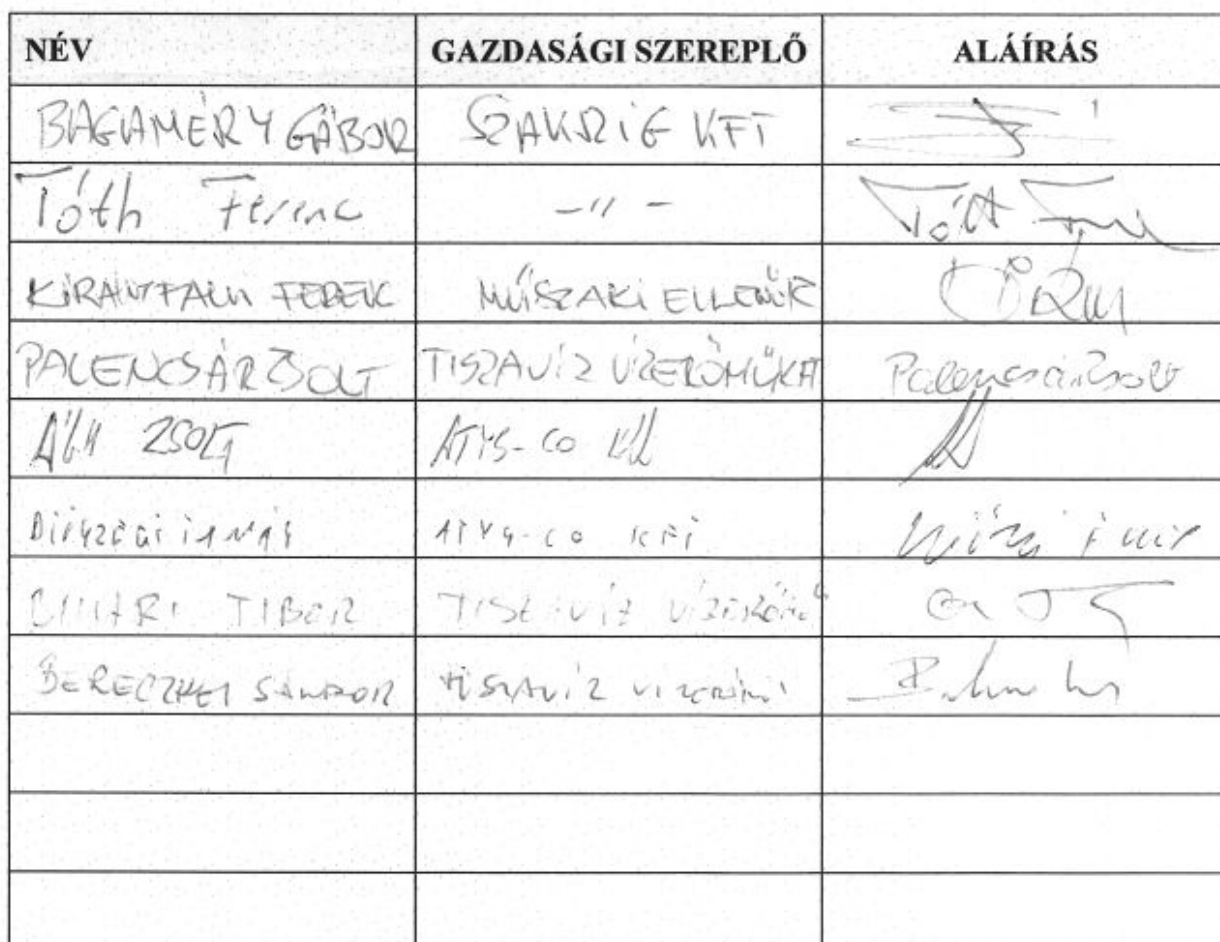 NÉV GAZDASÁGI SZEREPLŐ ALÁÍRÁS
BAGAMÉRY GÁBOR SZAKRIG KFT
Tóth Ferenc -"- Tóth
KIRÁLYFALVI FERENC MŰSZAKI ELLENŐR
PALENCSÁR ZSOLT TISZAVÍZ VÍZERŐMŰ KFT Palencsár Zsolt
ZSOLT ATYS-CO Kft
DIÓSZEGI ATYS-CO KFT
BIHARI TIBOR TISZAVÍZ VÍZERŐMŰ
BERECZKEI SÁNDOR TISZAVÍZ VÍZERŐMŰ